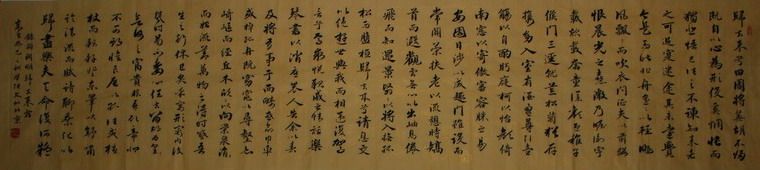 歸去來兮田園將蕪胡不歸
既自以心為形役奚惆悵而
獨悲悟已往之不諫知來者
之可追實迷途其未遠覺
今是而昨非舟遙遙以輕颺
風飄飄而吹衣問征夫以前路
恨晨光之熹微乃瞻衡宇
載欣載奔僮僕歡迎稚子
候門三逕就荒松菊猶存
攜幼入室有酒盈罇引壺
觴以自酌眄庭柯以怡顏倚
南窗以寄傲審容膝之易
安園日涉以成趣門雖設而
常關策扶老以流憩時矯
首而遐觀雲無心以出岫鳥倦
飛而知還景翳翳以將入撫孤
松而盤桓歸去來兮請息交
以絕游世與我而相違復駕
言兮焉求悅親戚之情話樂
琴書以消憂農人告余以春
及將有事于西疇或命巾車
或棹孤舟既窈窕以尋壑亦
崎嶇而經丘木欣欣以向榮泉涓
涓而始流善萬物之得時感吾
生之行休已矣乎寓形宇內復
幾時曷不委心任去留胡為乎
遑遑欲何之富貴非吾願帝鄉
不可期懷良辰以孤往或植
杖而耘耔登東皋以舒嘯
臨清流而賦詩聊乘化以
歸盡樂夫天命復奚疑
錄陶淵明歸去來辭